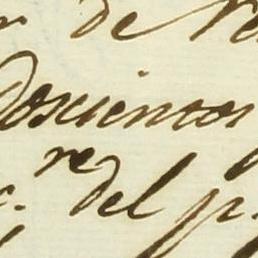 de
Doscientos
re
del p.